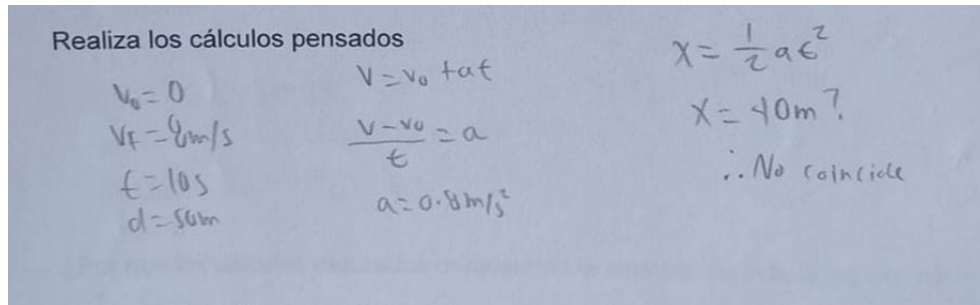 Realiza los cálculos pensados
V₀ = 0
VF = 8m/s
t = 10s
d = 50m
V = V₀ + at
(V - V₀)/t = a
a = 0.8m/s²
X = 1/2 at²
X = 40m?
∴ No coincide